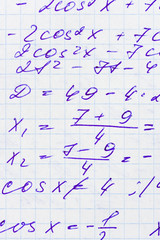 - 2cos²x + 7c
- 2cos²x + 7c
2cos²x - 7c
2t² - 7t - 4
D = 49 - 4·2
x₁ = (7 + 9)/4 =
x₂ = (7 - 9)/4 = -
cos x ≠ 4 ; |4
cos x = - 1/2 x